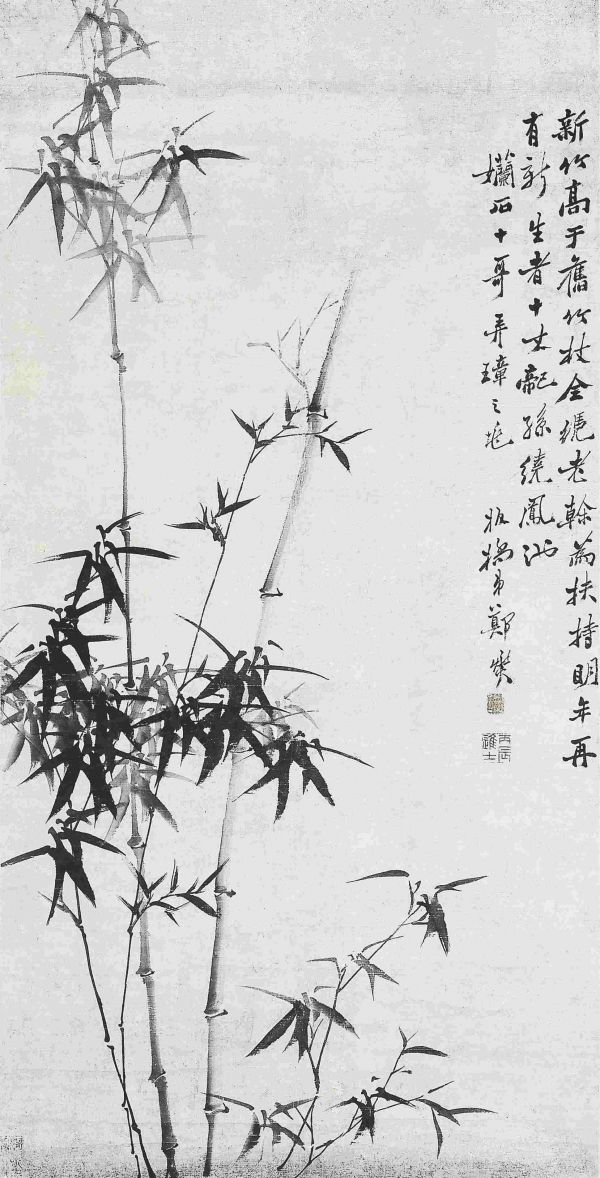 新竹高于舊竹枝全憑老榦為扶持明年再
有新生者十丈龍孫繞鳳池
孏石十哥弄璋之 板橋弟鄭燮
丙辰
進士